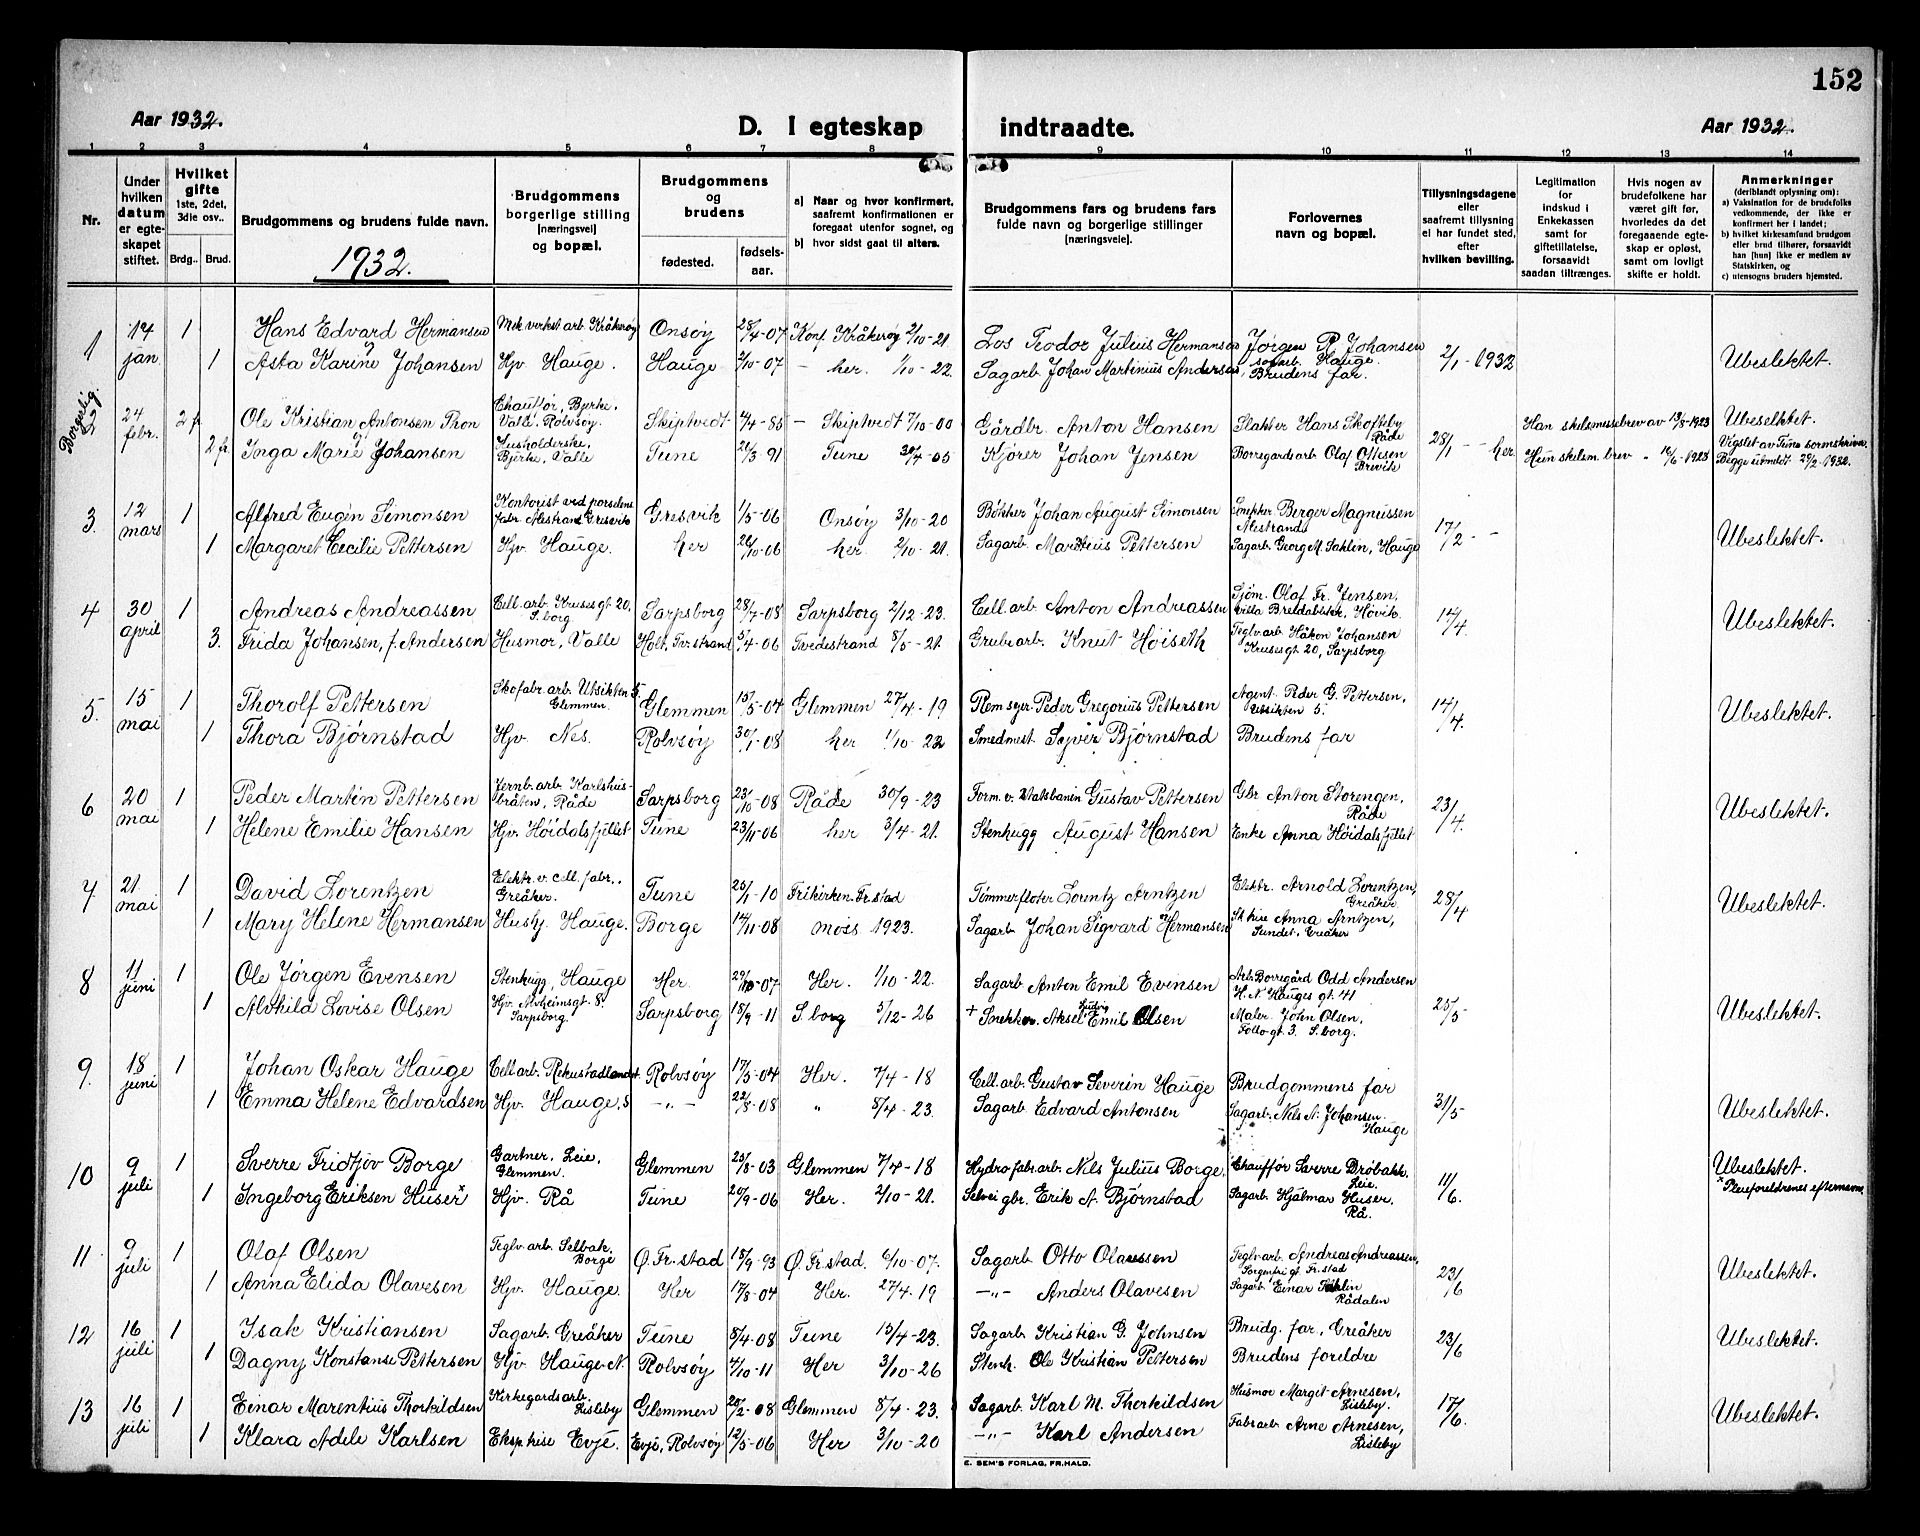 152
Aar 1932.
D. I egteskap indtraadte.
Aar 1932.
1 2 3 4 5 6 7 8 9 10 11 12 13 14
Nr.
Under hvilken datum er egteskapet stiftet.
Hvilket gifte 1ste, 2det, 3die osv..
Brdg.. Brud.
Brudgommens og brudens fulde navn.
1932.
Brudgommens borgerlige stilling [næringsvei] og bopæl.
Brudgommens og brudens
fødested.
fødselsaar.
a) Naar og hvor konfirmert, saafremt konfirmationen er foregaat utenfor sognet, og
b) hvor sidst gaat til alters.
Brudgommens fars og brudens fars fulde navn og borgerlige stillinger [næringsveie].
Forlovernes navn og bopæl.
Tillysningsdagene eller saafremt tillysning ei har fundet sted, efter hvilken bevilling.
Legitimation for indskud i Enkekassen samt for giftetillatelse, forsaavidt saadan tiltrænges.
Hvis nogen av brudefolkene har været gift før, hvorledes da det foregaaende egteskap er opløst, samt om lovligt skifte er holdt.
Anmerkninger (deriblandt oplysning om): a) Vaksination for de brudefolks vedkommende, der ikke er konfirmert her i landet; b) hvilket kirkesamfund brudgom eller brud tilhører, forsaavidt han [hun] ikke er medlem av Statskirken, og c) utensogns bruders hjemsted.
1 14 jan. 1 Hans Edvard Hermansen Mek verkst arb. Kråkerøy Onsøy 28/4-07 Konf. Kråkerøy 2/10-21 Los Teodor Julius Hermansen Jørgen R. Johansen sagarb. Hauge 2/1-1932 Ubeslektet.
1 Asta Karine Johansen Hjv. Hauge. Hauge 2/10-07 - her. 1/10-22. Sagarb. Johan Martinius Andersen, Brudens far.
Borgerlig
2 24 febr. 2 f. Ole Kristian Antonsen Thon Chauffør, Bjerke, Valle, Rolvsøy. Skiptvedt 4/4-85 - Skiptvedt 7/10-00 Gårdbr. Anton Hansen Slakter Hans Skofteby Råde 28/1 - - her. Han skilsmissebrev av 13/8-1923 Ubeselktet.
2 f. Inga Marie Johansen Husholderske, Bjerke, Valle Tune 21/3 91 Tune 30/4-05 Kjører Johan Jensen Borregaards arb. Olaf Ottesen Brevik Hun skilsm. brev " 16/6-1923 Vigslet av Tune sormskriver. Begge utmeldt 29/2-1932.
3. 12 mars 1 Alfred Eugen Simonsen Kontorist ved porselens fabr. Alestrand Gresvik Gresvik 1/5-06 Onsøy 3/10-20 Bøkker Johan August Simonsen Snekker Berger Magnussen Alestrand 17/2 - - Ubeslektet.
1 Margaret Cecilie Pettersen Hjv. Hauge. her 26/10-06 her. 2/10-21. Sagarb. Martinius Pettersen Sagarb. Georg M. Saklin, Hauge
4 30 april 1 Andreas Andreassen Cell. arb. Kruses gt 20, S.borg Sarpsborg 28/7-08 Sarpsborg 2/12-23. Cell. arb. Anton Andreassen Sjøm. Olaf Fr. Jensen, Villa Breidablikk, Høvik. 14/4. Ubeslektet.
3. Frida Johansen, f. Andersen Husmor, Valle Holt, Tv.strand 5/4-06 Tvedestrand 8/5-21. Grubearb. Knut Høiseth Teglv. arb. Håkon Johansen Kruses gt 20, Sarpsborg
5. 15 mai 1 Thorolf Pettersen Skofabr. arb. Utsikten 5. Glemmen. Glemmen 15/5-04 Glemmen 27/4-19 Remsyer. Peder Gregorius Pettersen Agent. Peder G. Pettersen, Utsikten 5. 14/4. Ubeslektet.
1 Thora Bjørnstad Hjv. Nes. Rolvsøy 30/1-08 her 1/10-22 Smedmest. Syver Bjørnstad Brudens far
6 20 mai 1 Peder Martin Pettersen Jernb. arb. Karlshusbråten, Råde Sarpsborg 23/10-08 Råde 30/9-23 Form. v. Statsbanen Gustav Pettersen Gbr Anton Storengen, Råde 23/4. Ubeslektet.
1 Helene Emilie Hansen Hjv. Høidalsfjellet Tune 23/11-06 her 3/4-21. Stenhugg August Hansen Enke Anna Høidalsfjellet
7 21 mai 1 David Lorentzen Elektr. v. cell. fabr., Greåker. Tune 25/1-10 Frikirken Fr.stad Tømmerfløter Lorentz Arntzen Elektr. Arnold Lorentzen, Greåker 28/4 Ubeslektet.
1 Mary Helene Hermansen Hushj. Hauge. Borge 14/11-08 Moss 1923. Sagarb. Johan Sigvard Hermansen Anna Arntzen, Sundet, Greåker
8 11 juni 1 Ole Jørgen Evensen Stenhugg, Hauge Her 29/10-07 Her. 1/10-22. Sagarb. Anton Emil Evensen Arb. Borregård Odd Andersen H. N. Hauges gt. 41 25/5 Ubeslektet.
1 Alvhild Lovise Olsen Hjv. Alvheimsgt. 8. Sarpsborg. Sarpsborg 18/9-11 S.borg 5/12-26 + Snekker Aksel Ludvig Emil Olsen Maler. John Olsen, Follogt. 3. S.borg.
9. 18 juni 1 Johan Oskar Hauge Cell. arb. Rekustadlandet. Rolvsøy 17/5-04 Her. 7/4-18 Cell. arb. Gustav Severin Hauge Brudgommens far 31/5 Ubeslektet.
1 Emma Helene Edvardsen Hjv. Hauge, S -"- 22/8-08 " 8/4-23. Sagarb. Edvard Antonsen Sagarb. Nils N. Johansen. Hauge
10 9 juli 1 Sverre Fridtjov Borge Gartner, Leie, Glemmen. Glemmen 25/8-03 Glemmen 7/4-18 Hydrofabr.arb. Nils Julius Borge, Chauffør Sverre Drøbakk. Leie. 11/6. Ubeslektet.
1 Ingeborg Eriksen Huserx Hjv. Rå Tune 20/9-06 Her. 2/10-21. Selvei gbr. Erik A. Bjørnstad Sagarb. Hjalmar Huser, Rå. x Pleieforeldrenes efternavn.
11. 9 juli 1 Olaf Olsen Teglv. arb. Selbak, Borge Ø. Fr.stad 15/9-93 Ø. Fr.stad. 6/10-07. Sagarb Otto Olaussen Teglv-arb. Andreas Andreassen, Fr.stad 23/6 Ubeslektet.
1 Anna Elida Olavesen Hjv. Hauge. Her 17/8-04 Her. 27/4-19 -"- Anders Olavesen Sagarb. Einar Saklin Rådalen
12 16 juli 1 Isak Kristiansen Sagarb. Greåker Tune 5/4-08 Tune 15/4-23. Sagarb Kristian G. Johnsen Brudg. far, Greåker 23/6 Ubeslektet.
1 Dagny Konstanse Pettersen Hjv. Hauge N. Rolvsøy 4/10-11 Her 3/10-26 Stenh. Ole Kristian Pettersen Brudens foreldre
13 16 juli 1 Einar Marentius Thorkildsen Kirkegårdsarb. Lisleby Glemmen 20/2-08 Glemmen 8/4-23. Sagarb Karl M. Thorkildsen Husmor Margit Arnesen, Lisleby. 17/6. Ubeslektet.
1 Klara Adele Karlsen Ekspedrise Evje. Evje, Rolvsøy 12/5-06 Her 3/10-20 -"- Karl Andersen Fabr arb. Arne Arnesen, Lisleby
E. SEM'S FORLAG, FR.HALD.